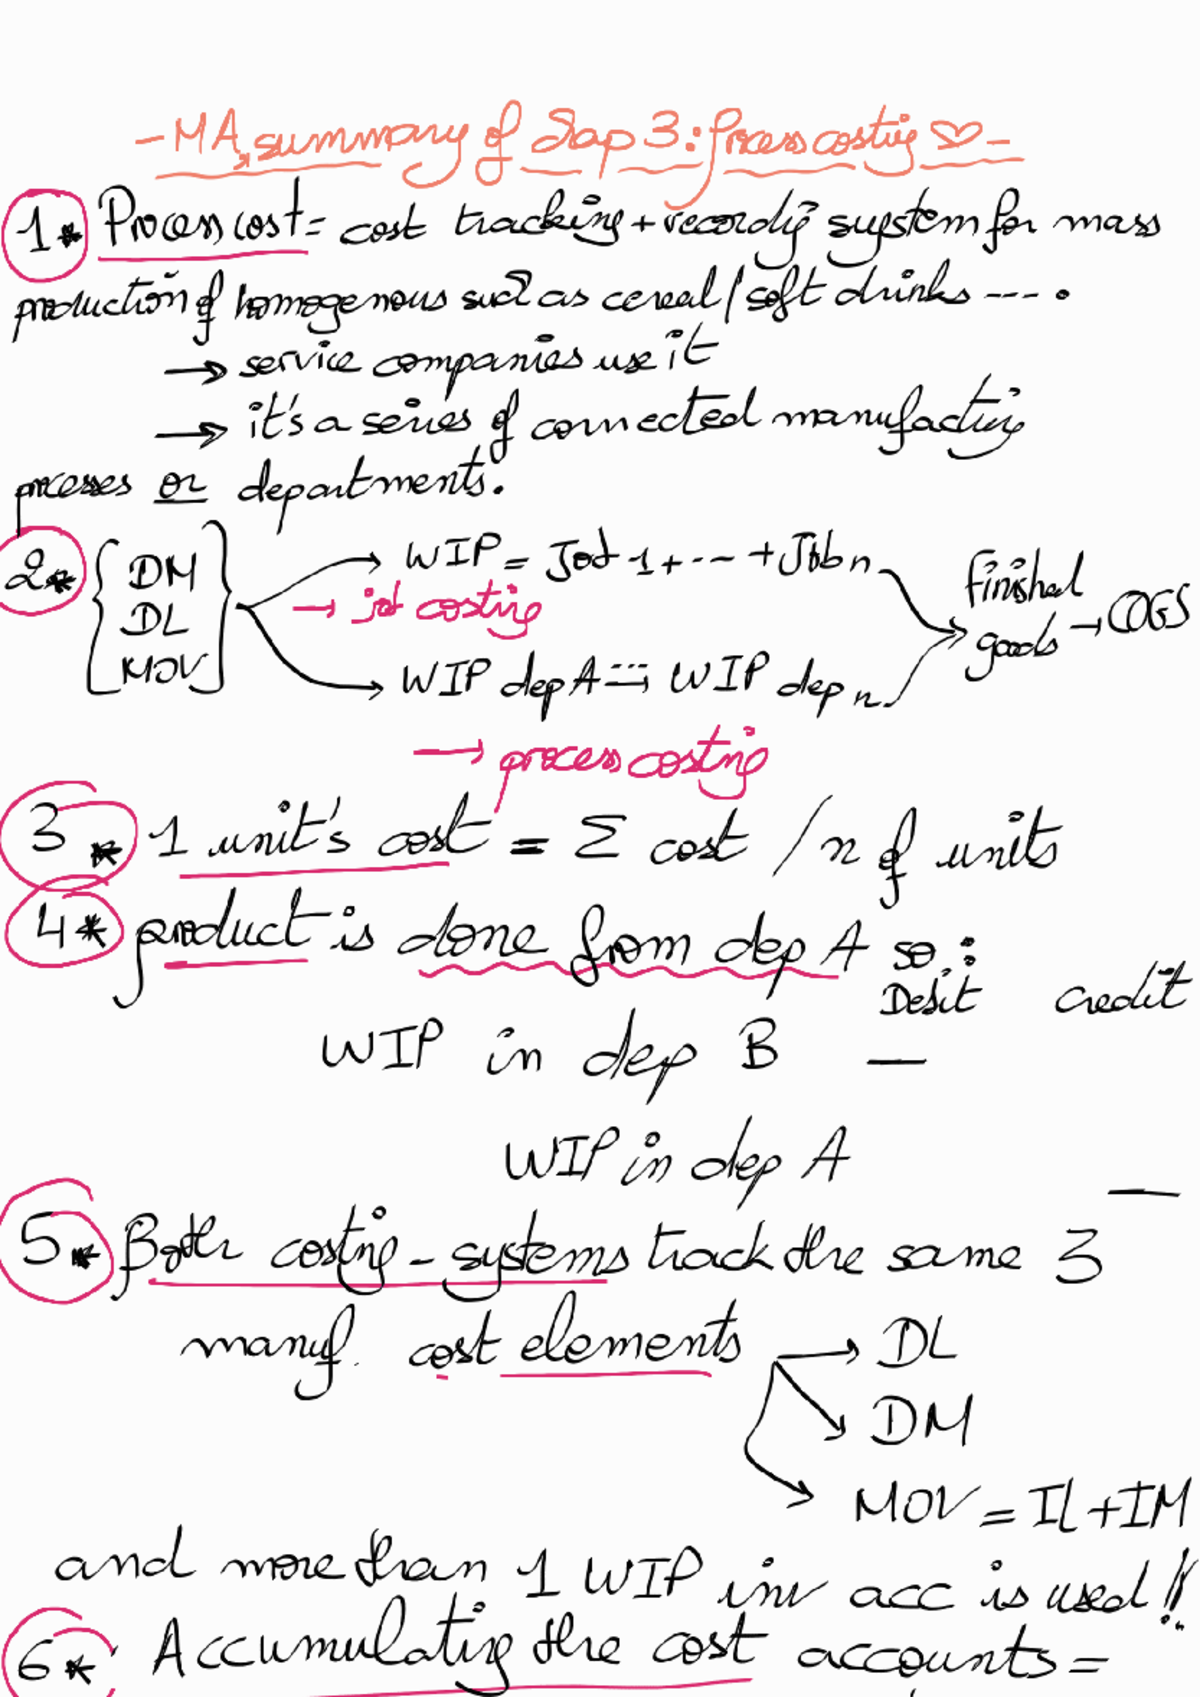 - MA summary of chap 3: process costing ♡ -
1* Process cost = cost tracking + recordig system for mass
production of homogenous such as cereal / soft drinks ---- .
→ service companies use it
→ it's a series of connected manufacturig
processes or departments.
2* { DM DL MOV } → WIP = Job 1 + --- + Job n
→ job costing
→ WIP dep A ---→ WIP dep n
Finished goods → COGS
→ process costing
3* 1 unit's cost = Σ cost / n of units
4* product is done from dep A so :
Debit credit
WIP in dep B —
WIP in dep A —
5* Both costing - systems track the same 3
manuf. cost elements → DL
→ DM
→ MOV = IL + IM
and more than 1 WIP inv acc is used !!
6* Accumulating the cost accounts =